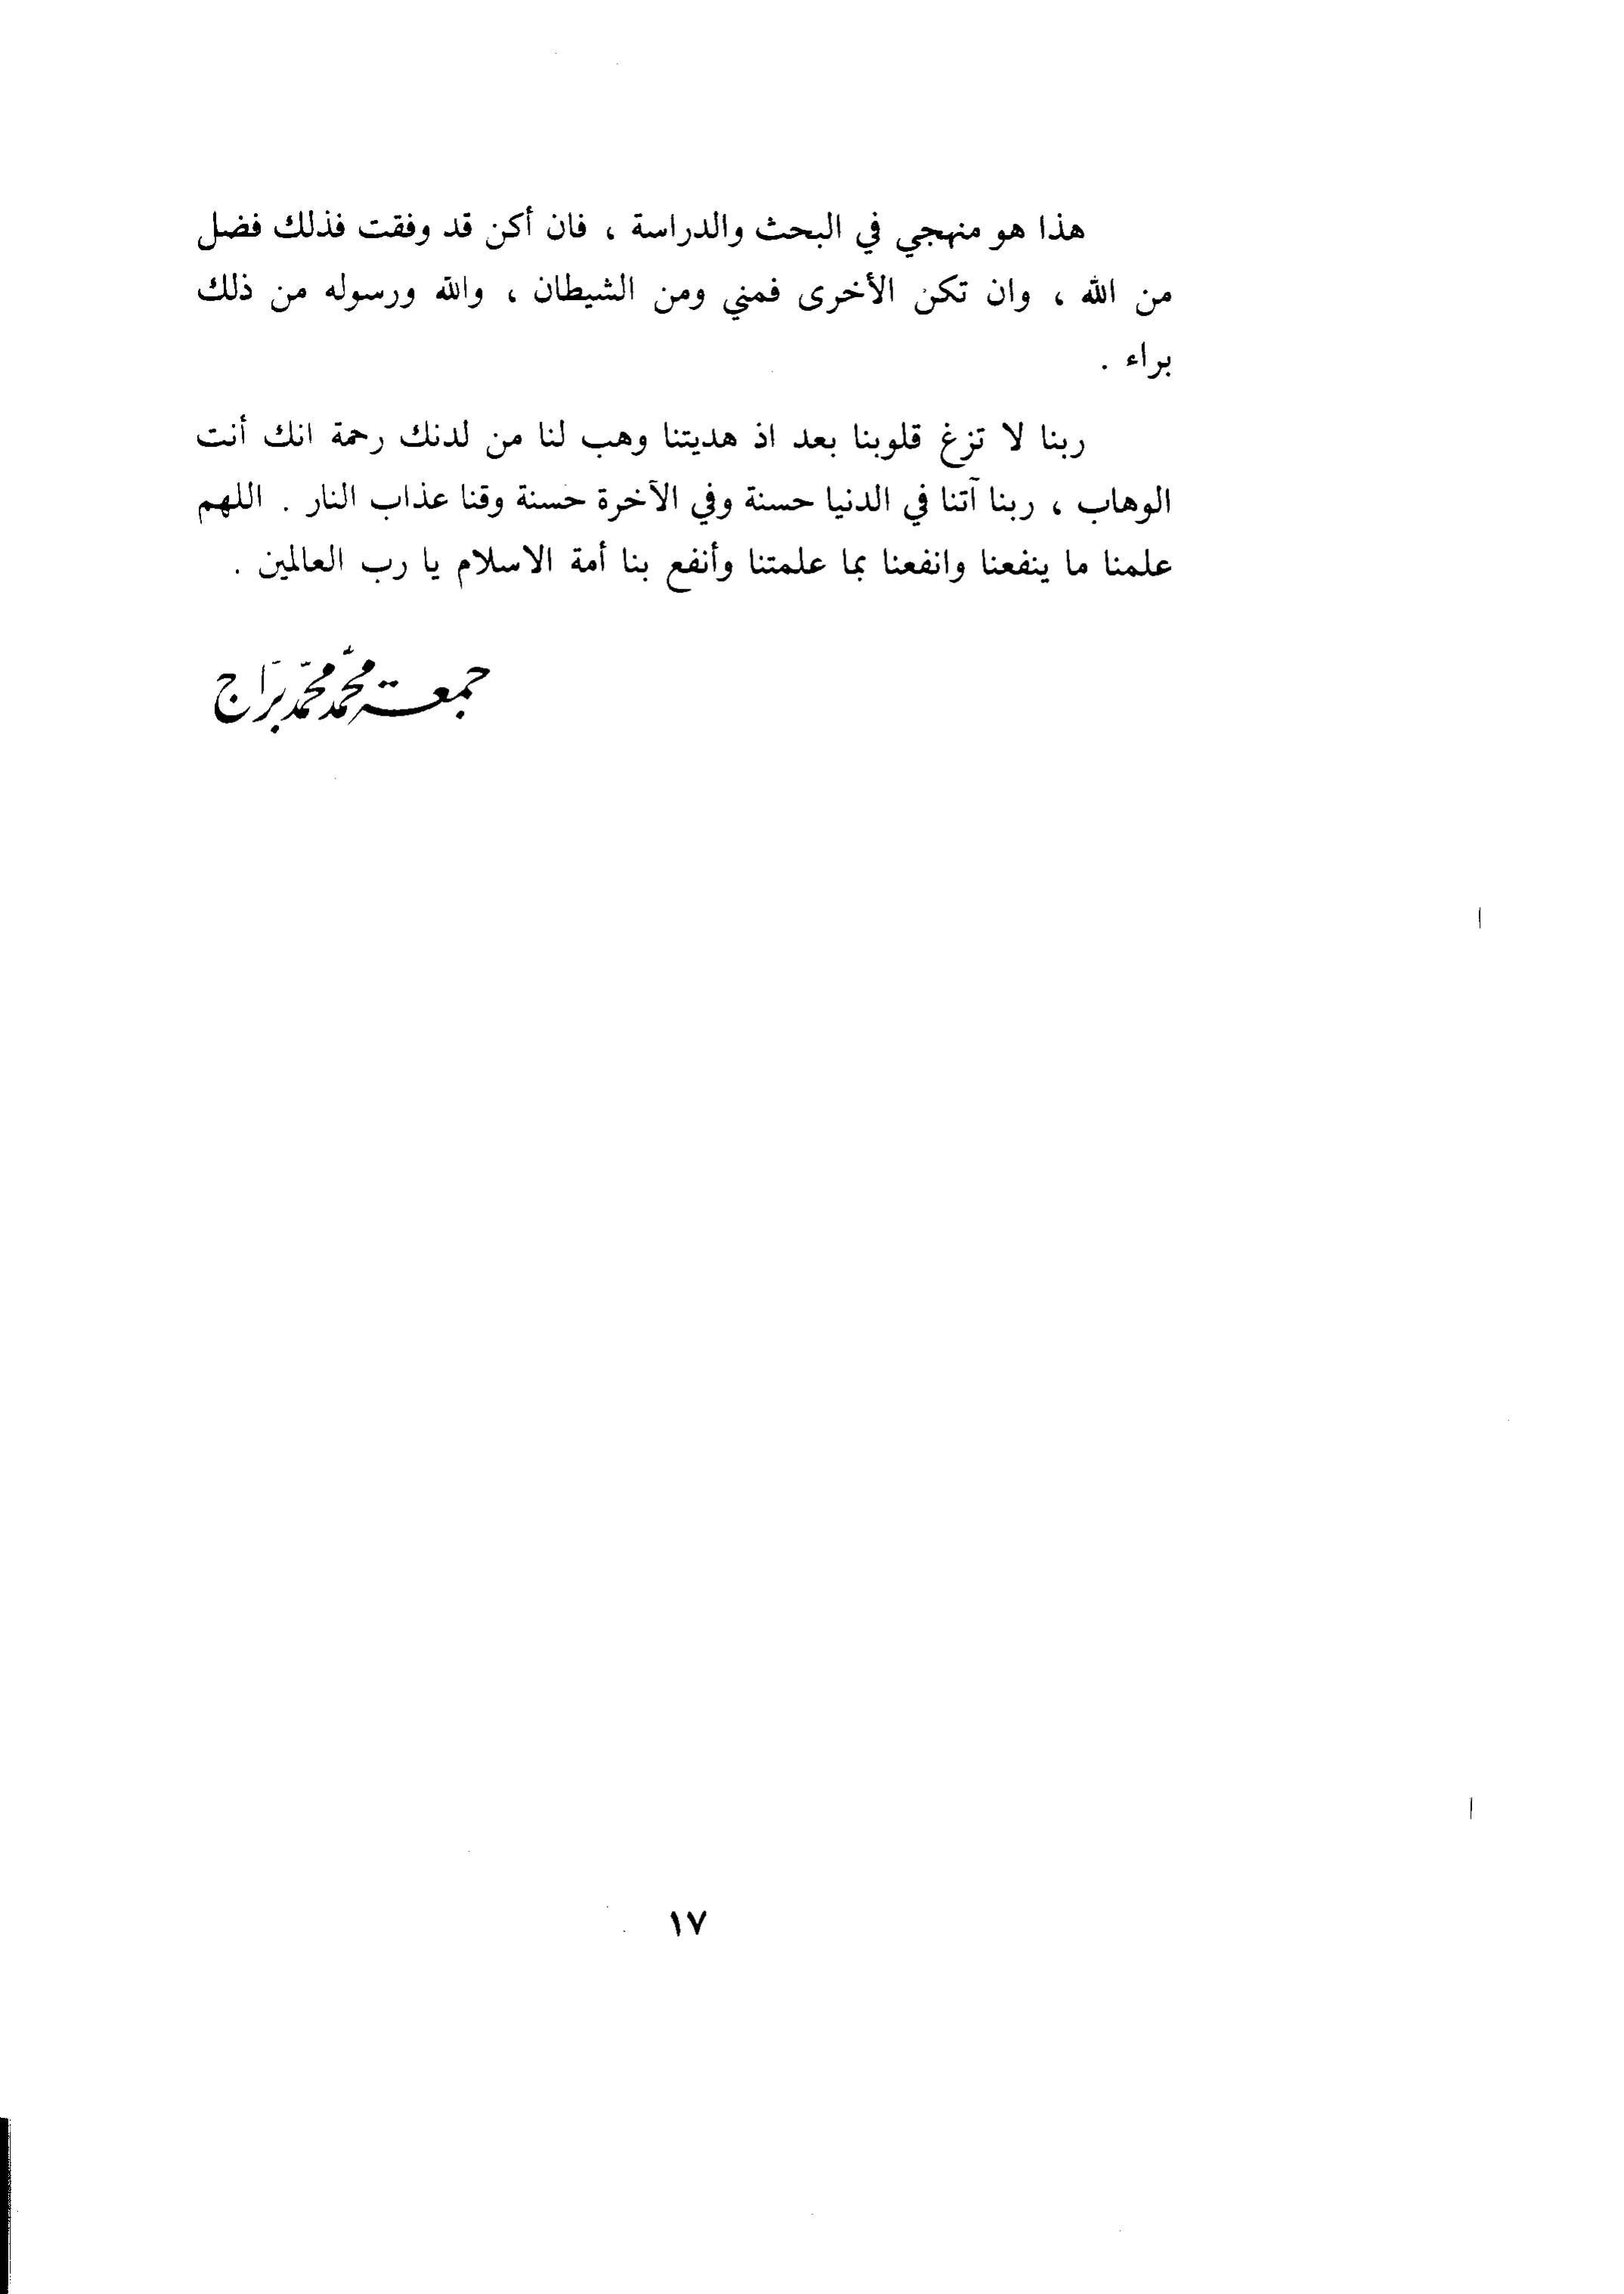 هذا هو منهجي في البحث والدراسة ، فان أكن قد وفقت فذلك فضل
من الله ، وان تكن الأخرى فمني ومن الشيطان ، والله ورسوله من ذلك
براء .
ربنا لا تزغ قلوبنا بعد اذ هديتنا وهب لنا من لدنك رحمة انك أنت
الوهاب ، ربنا آتنا في الدنيا حسنة وفي الآخرة حسنة وقنا عذاب النار . اللهم
علمنا ما ينفعنا وانفعنا بما علمتنا وأنفع بنا أمة الاسلام يا رب العالمين .
جمعة محمّد محمّد برّاج
١٧